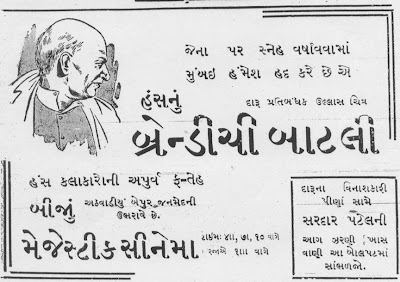 જેના પર સ્નેહ વર્ષાવવામાં
મુંબઇ હંમેશ હદ કરે છે એ
હંસનું
દારૂ પ્રતિબંધક ઉલ્લાસ ચિત્ર
બ્રેન્ડીચી બાટલી
હંસ કલાકારોની અપુર્વ ફત્તેહ
બીજું
અઠવાડીયું બેપુર જનમેદની
ઉભરાવે છે.
મેજેસ્ટીક સીનેમા
ટાઇમઃ ૪ાા, ૭ા, ૧૦ વાગે
રજાએ ૧ાાા વાગે
દારૂના વિનાશકારી
પીણાં સામે
સરદાર પટેલની
આગ ઝરણી ખાસ
વાણી આ બોલપટમાં
સાંભળજો.